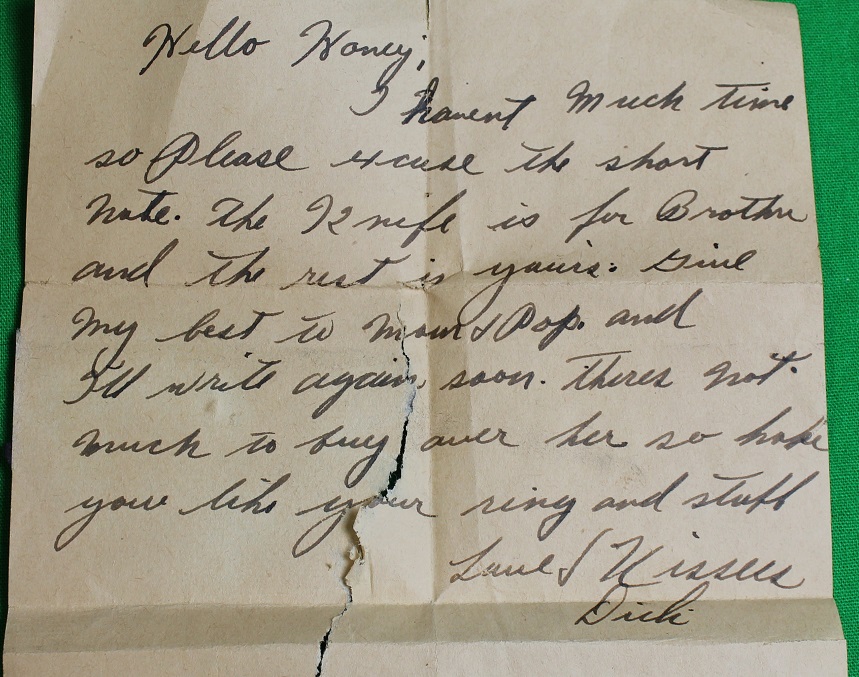 Hello Honey,
I havent Much time
so Please excuse the short
note. The Knife is for Brother
and the rest is yours. Give
My best to Mom & Pop. and
I'll write again soon. Theres not
much to buy over her so hope
you like your ring and stuff
Love & Kisses
Dick